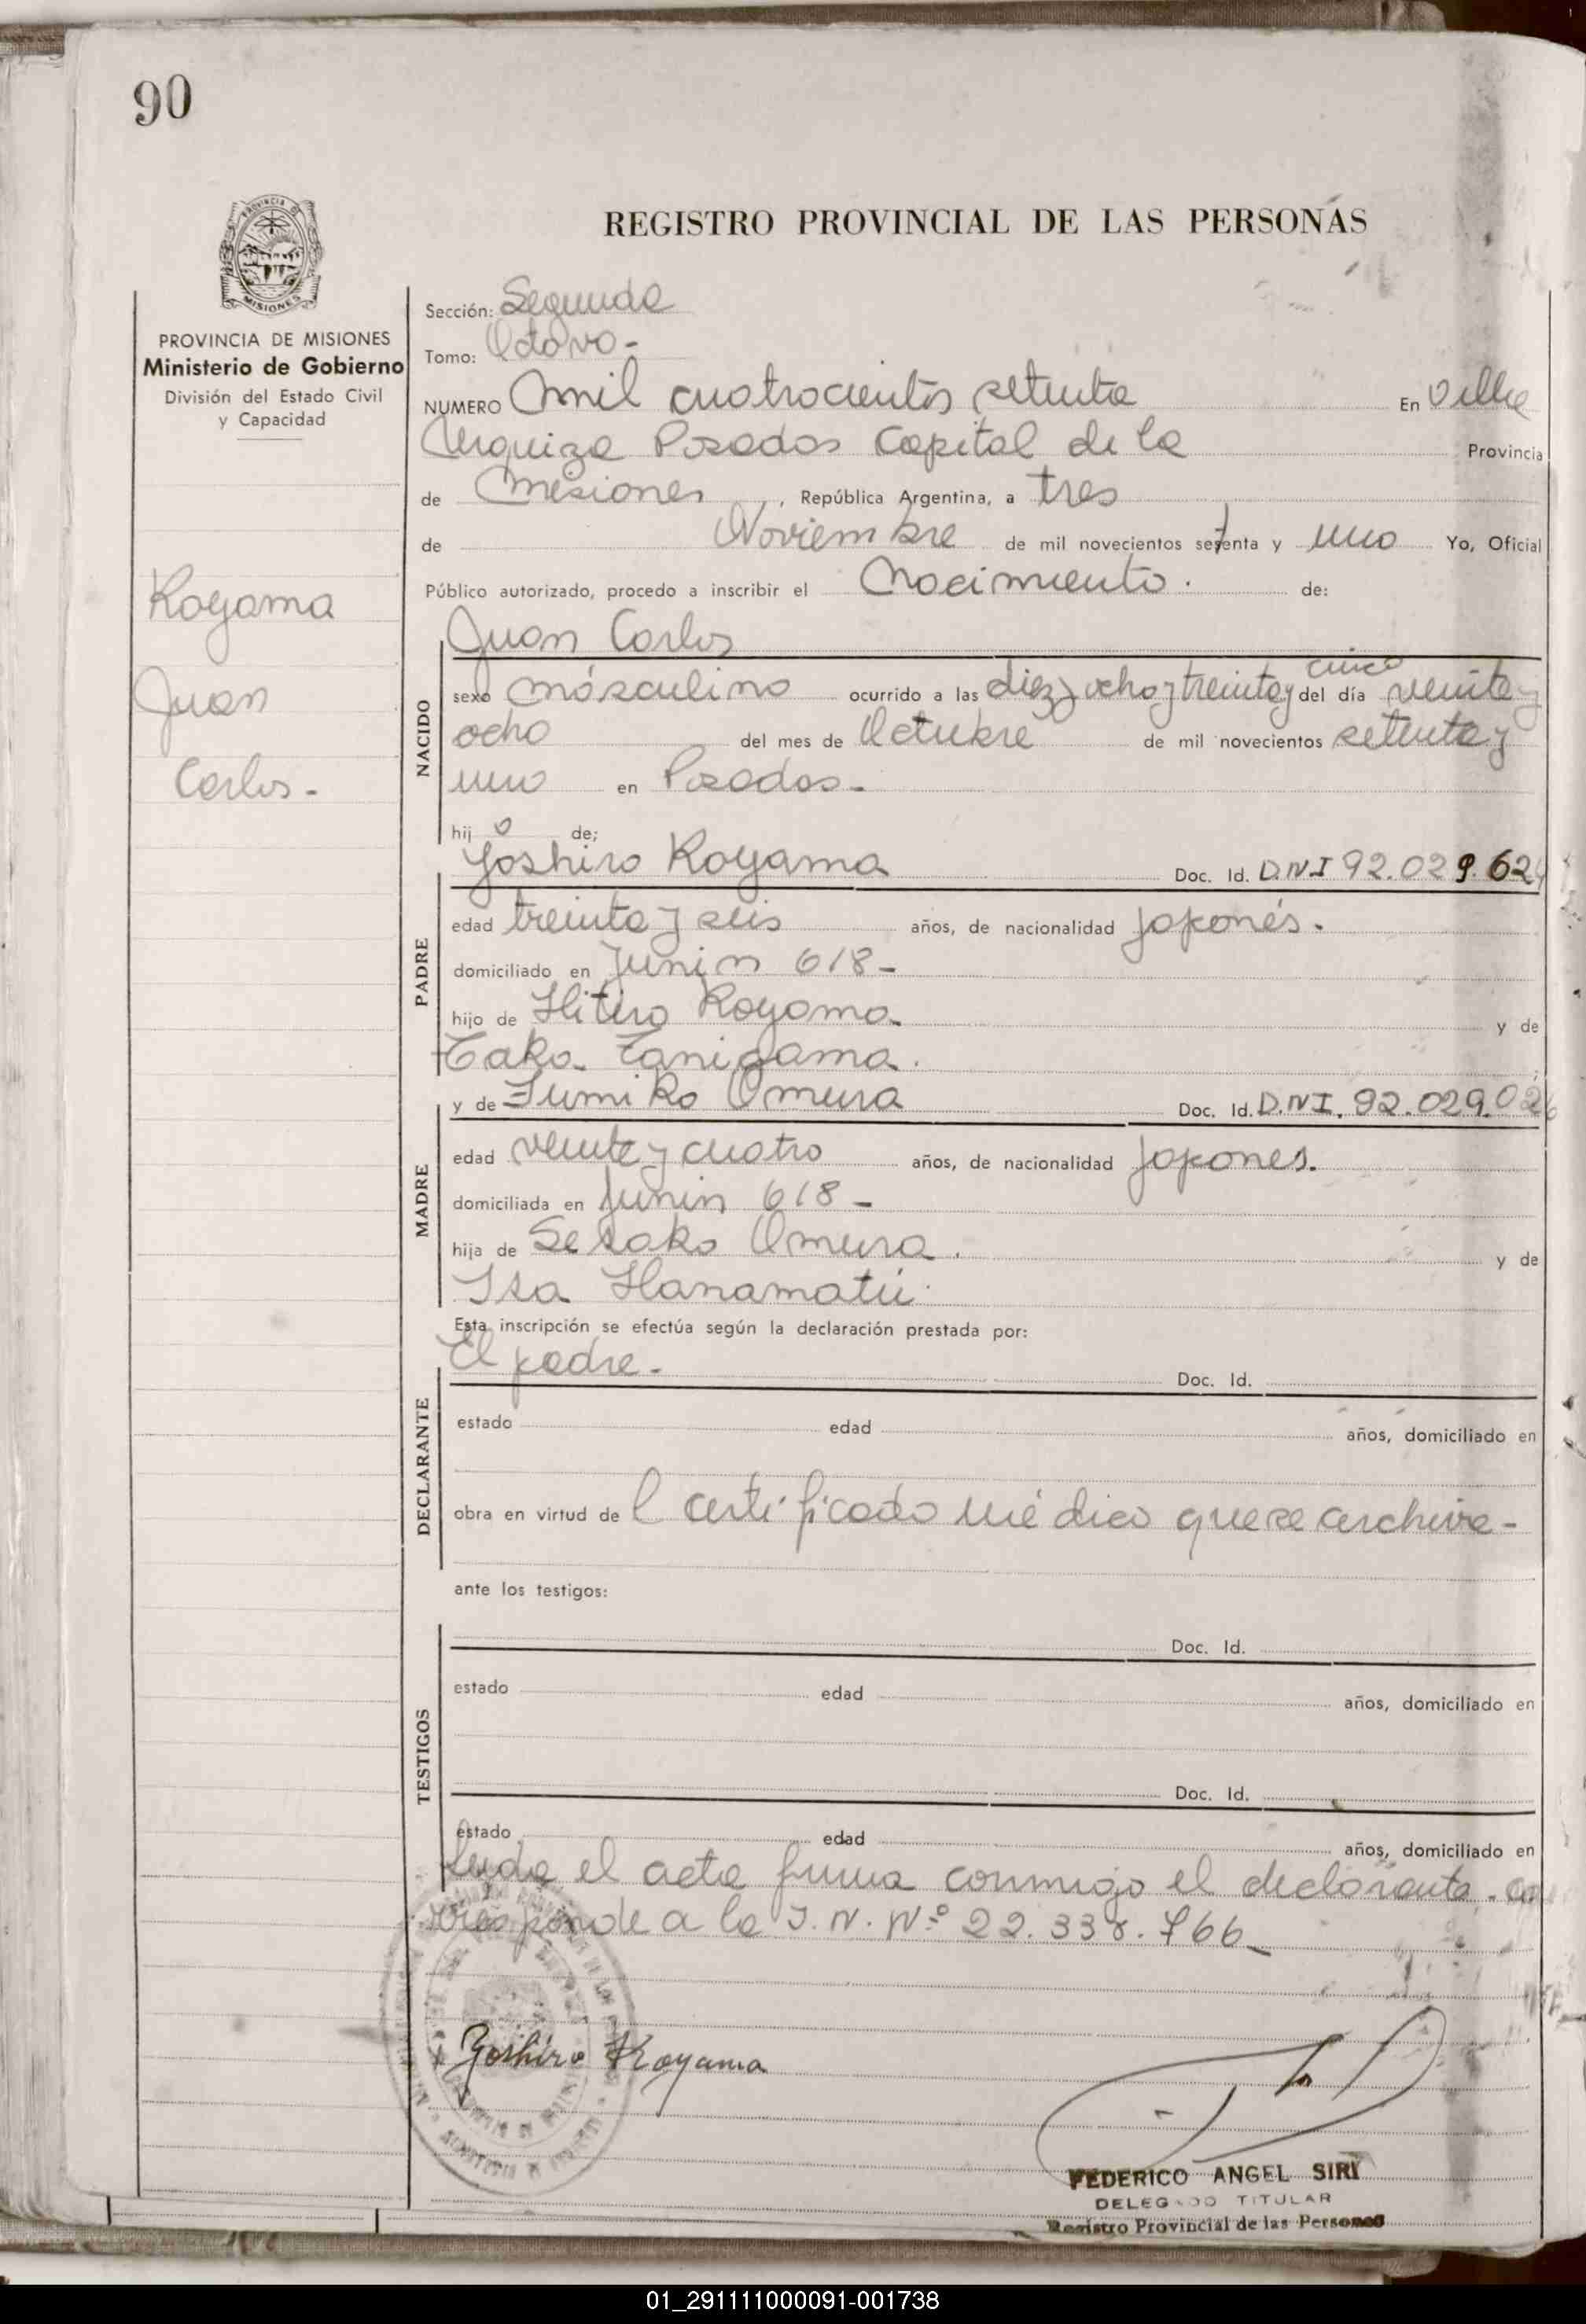 90
PROVINCIA DE
MISIONES
PROVINCIA DE MISIONES
Ministerio de Gobierno
División del Estado Civil
y Capacidad
Koyama
Juan
Carlos -
REGISTRO PROVINCIAL DE LAS PERSONAS
Sección: Segunda
Tomo: Octavo -
NUMERO Mil cuatrocientos setenta En Villa
Urquiza Posadas Capital de la Provincia
de Misiones, República Argentina, a tres
de Noviembre de mil novecientos setenta y uno Yo, Oficial
Público autorizado, procedo a inscribir el Nacimiento. de:
Juan Carlos
NACIDO
cinco
sexo másculino ocurrido a las diez y ocho y treinta y del día veinte y
ocho del mes de Octubre de mil novecientos setenta y
uno en Posadas -
hijo de;
PADRE
Yoshiro Koyama Doc. Id. D.N.I 92.029.624
edad treinta y seis años, de nacionalidad japonés.
domiciliado en Junin 618 -
hijo de Hitiro Koyama y de
Tako Tanigama.
MADRE
y de Fumiko Omura Doc. Id. D.N.I. 92.029.026
edad veinte y cuatro años, de nacionalidad japones.
domiciliada en Junin 618 -
hija de Omura. y de
Isa Hanamatú.
Esta inscripción se efectúa según la declaración prestada por:
DECLARANTE
El padre - Doc. Id.
estado edad años, domiciliado en
obra en virtud de l certificado médico que se archiva -
ante los testigos:
TESTIGOS
Doc. Id.
estado edad años, domiciliado en
Doc. Id.
estado edad años, domiciliado en
Leida el acta firma conmigo el declarante. Co
rresponde a la I.N. Nº 22.338.766 -
Yoshiro Koyama
FEDERICO ANGEL SIRI
DELEGADO TITULAR
Registro Provincial de las Personas
01_291111000091-001738